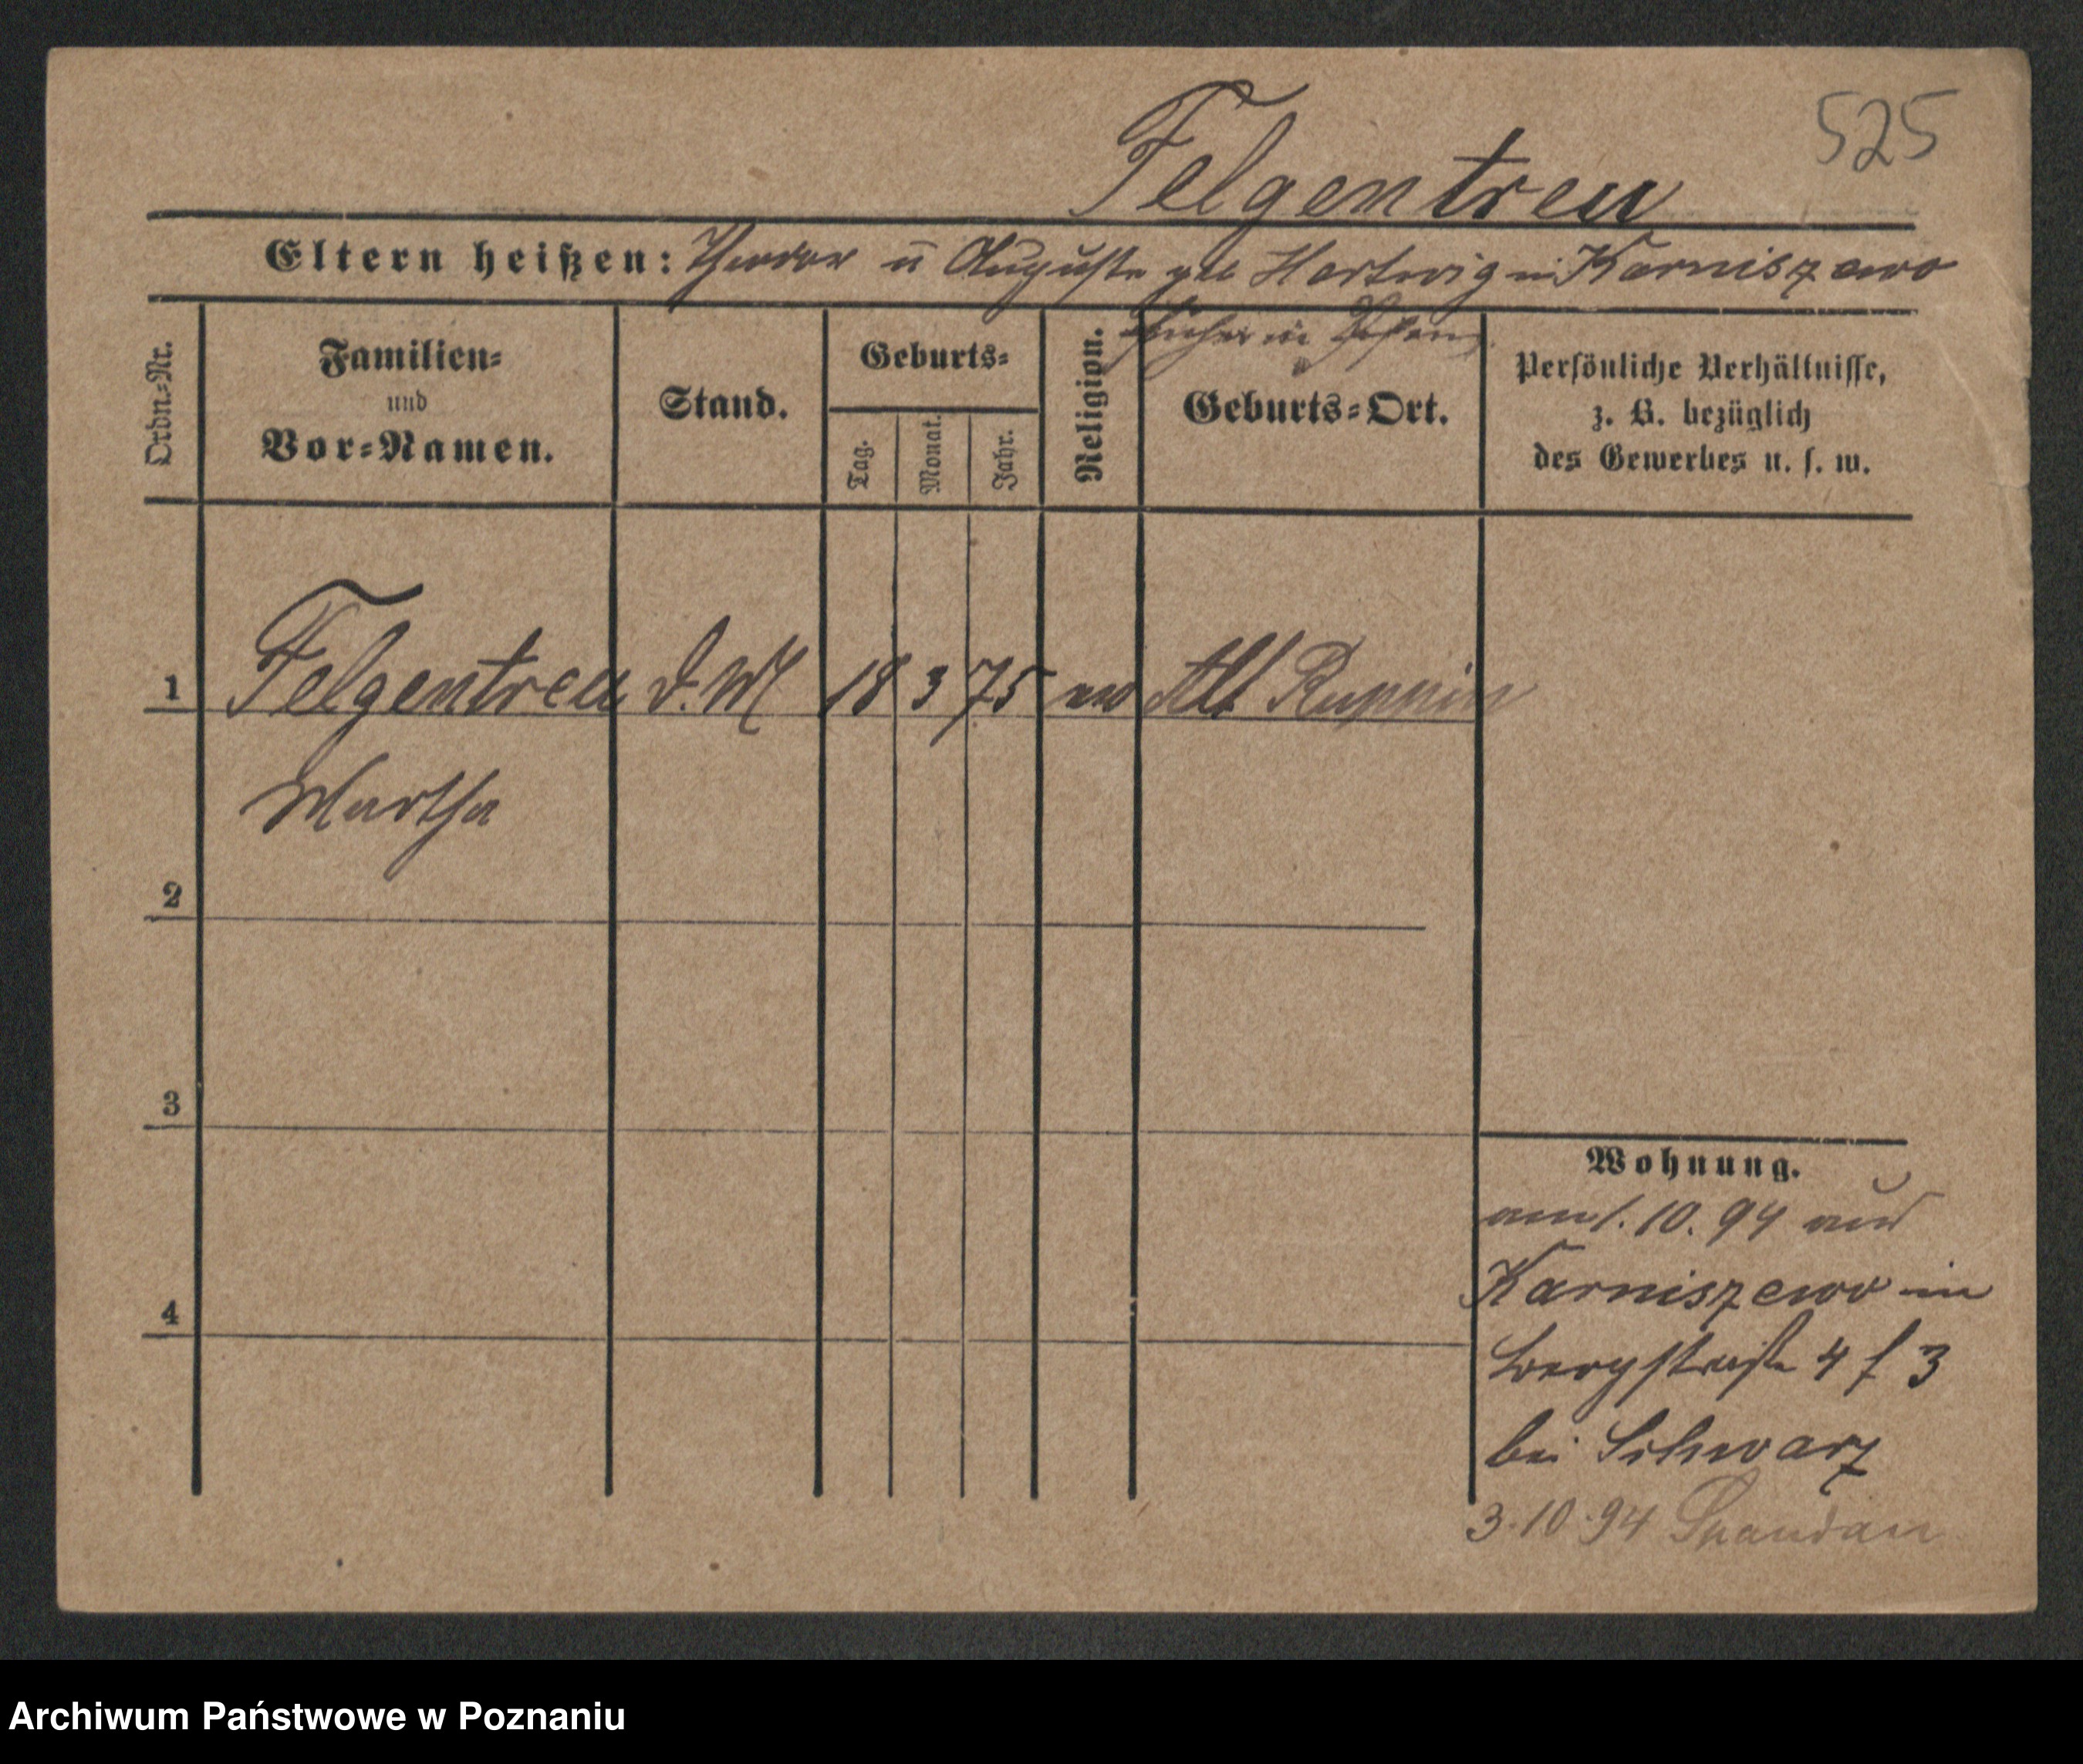 525
Felgentreu
Eltern heißen: Theodor u Auguste geb Hartwig in Karniszewo
früher in Posen
Ordn.-Nr.
Familien-
und
Vor-Namen.
Stand.
Geburts-
Tag.
Monat.
Jahr.
Religion.
Geburts-Ort.
Persönliche Verhältnisse,
z. B. bezüglich
des Gewerbes u. s. w.
1 Felgentreu d. M 18 3 75 ev Alt Ruppin
Martha
2
3
4
Wohnung.
am 1. 10. 94 aus
Karniszewo in
Bergstraße 4 f 3
bei Schwarz
3.10.94 Spandau
Archiwum Państwowe w Poznaniu